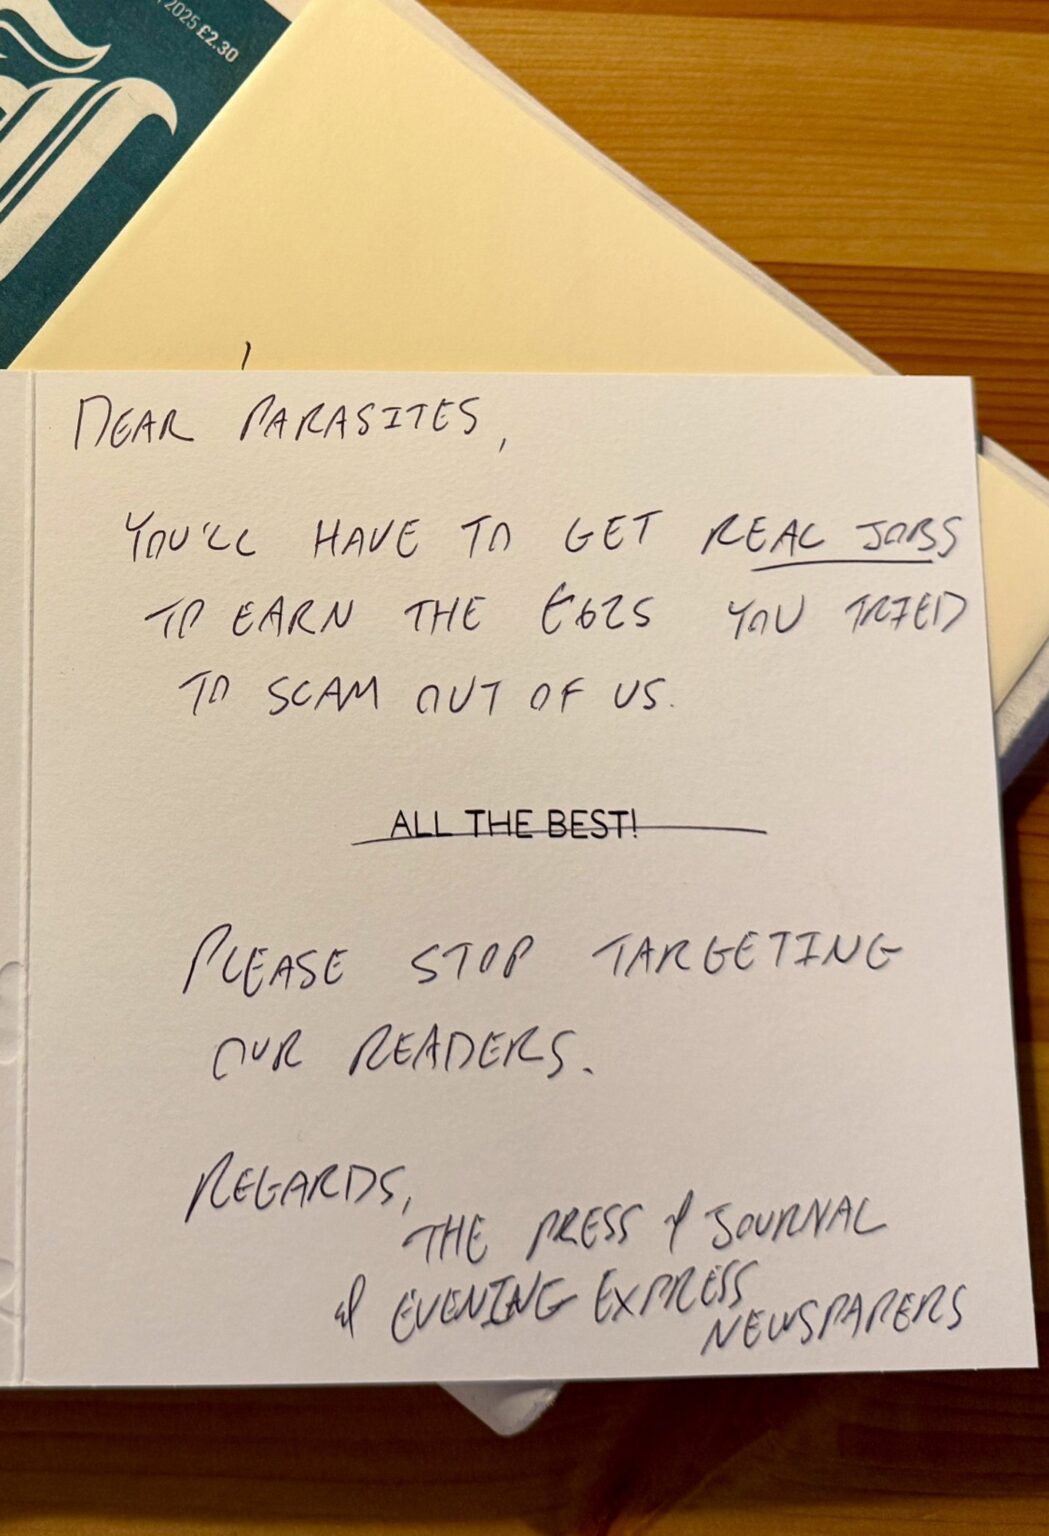 2025 £2.30
DEAR PARASITES,
YOU'LL HAVE TO GET REAL JOBS
TO EARN THE £625 YOU TRIED
TO SCAM OUT OF US.
ALL THE BEST!
PLEASE STOP TARGETING
OUR READERS.
REGARDS,
THE PRESS & JOURNAL
& EVENING EXPRESS
NEWSPAPERS